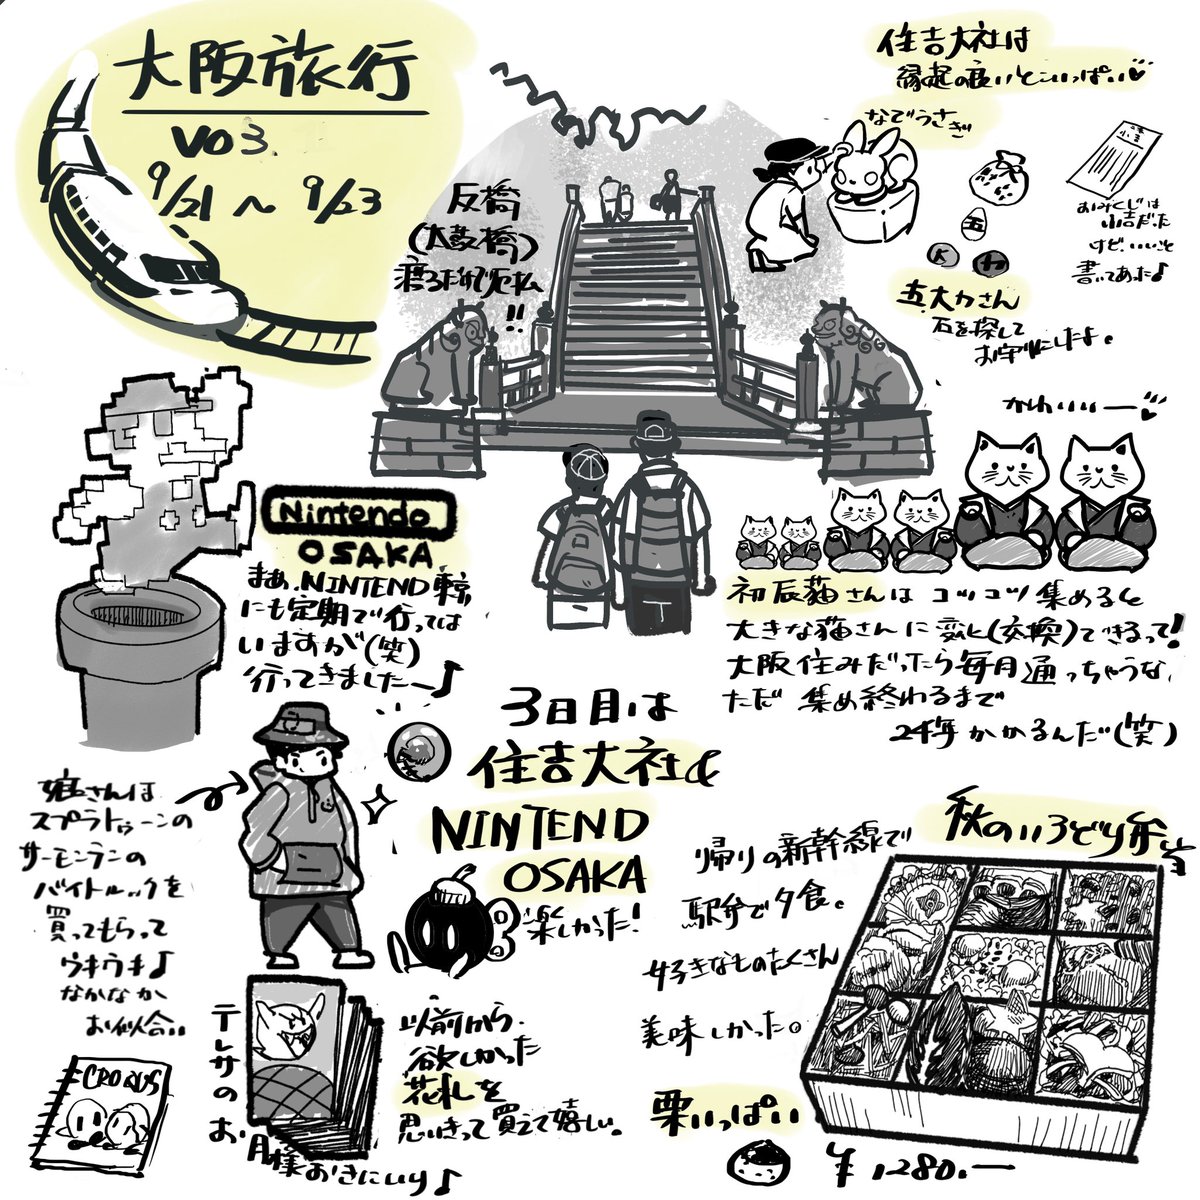 大阪旅行
vo 3.
9/21 〜 9/23
住吉大社は
縁起の良いとこいっぱい
なでうさぎ
反橋
(太鼓橋)
渡るだけで厄払
!!
小吉
おみくじは
小吉だった
けど、いいこと
書いてあった♪
五
大
力
五大力さん
石を探して
お守りにしたよ。
かわいいー
初辰猫さんは コツコツ集めると
大きな猫さんに変化(交換)できるって!
大阪住みだったら毎月通っちゃうな、
ただ 集め終わるまで
24年かかるんだ(笑)
Nintendo
OSAKA
まあ、NINTEND東京
にも定期で行っては
いますが(笑)
行ってきましたー♪
3日目は
住吉大社&
NINTEND
OSAKA
楽しかった!
娘さんは
スプラトゥーンの
サーモンランの
バイトルックを
買ってもらって
ウキウキ♪
なかなか
お似合い
CROQUS
テレサのお月様おきにいり♪
以前から
欲しかった
花札を
思いきって買えて嬉しい。
秋のいろどり弁当
帰りの新幹線で
駅弁で夕食。
好きなものたくさん
美味しかった。
栗いっぱい
¥1280.ー